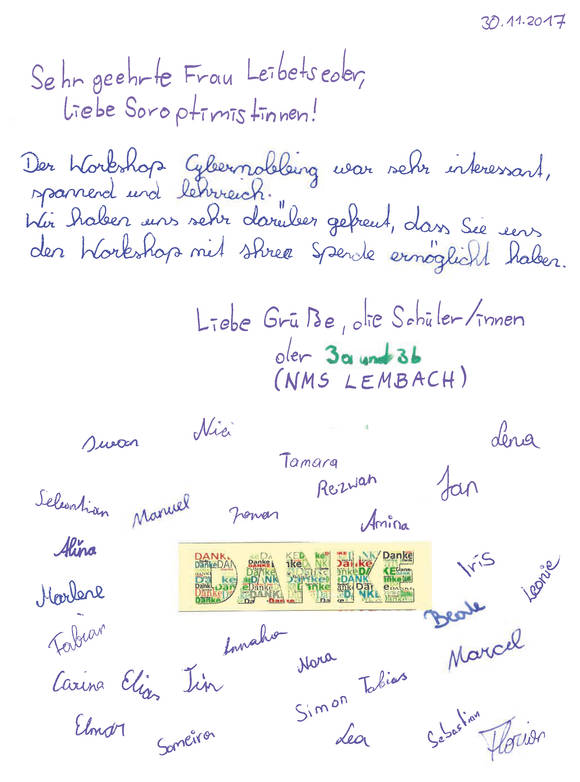 30.11.2017
Sehr geehrte Frau Leibetseder,
Liebe Soroptimistinnen!
Der Workshop Cybermobbing war sehr interessant,
spannend und lehrreich.
Wir haben uns sehr darüber gefreut, dass Sie uns
den Workshop mit Ihrer Spende ermöglicht haben.
Liebe Grüße, die Schüler/innen
der 3a und 3b
(NMS LEMBACH)
Nici
Lena
Tamara
Rezwan
Jan
Sebastian
Manuel
Amina
Alina
DANKE
Iris
Leonie
Marlene
Beate
Fabian
Annaha
Nora
Marcel
Carina Elias Tim
Simon Tobias
Elmar
Someira
Lea
Sebastian
Florian